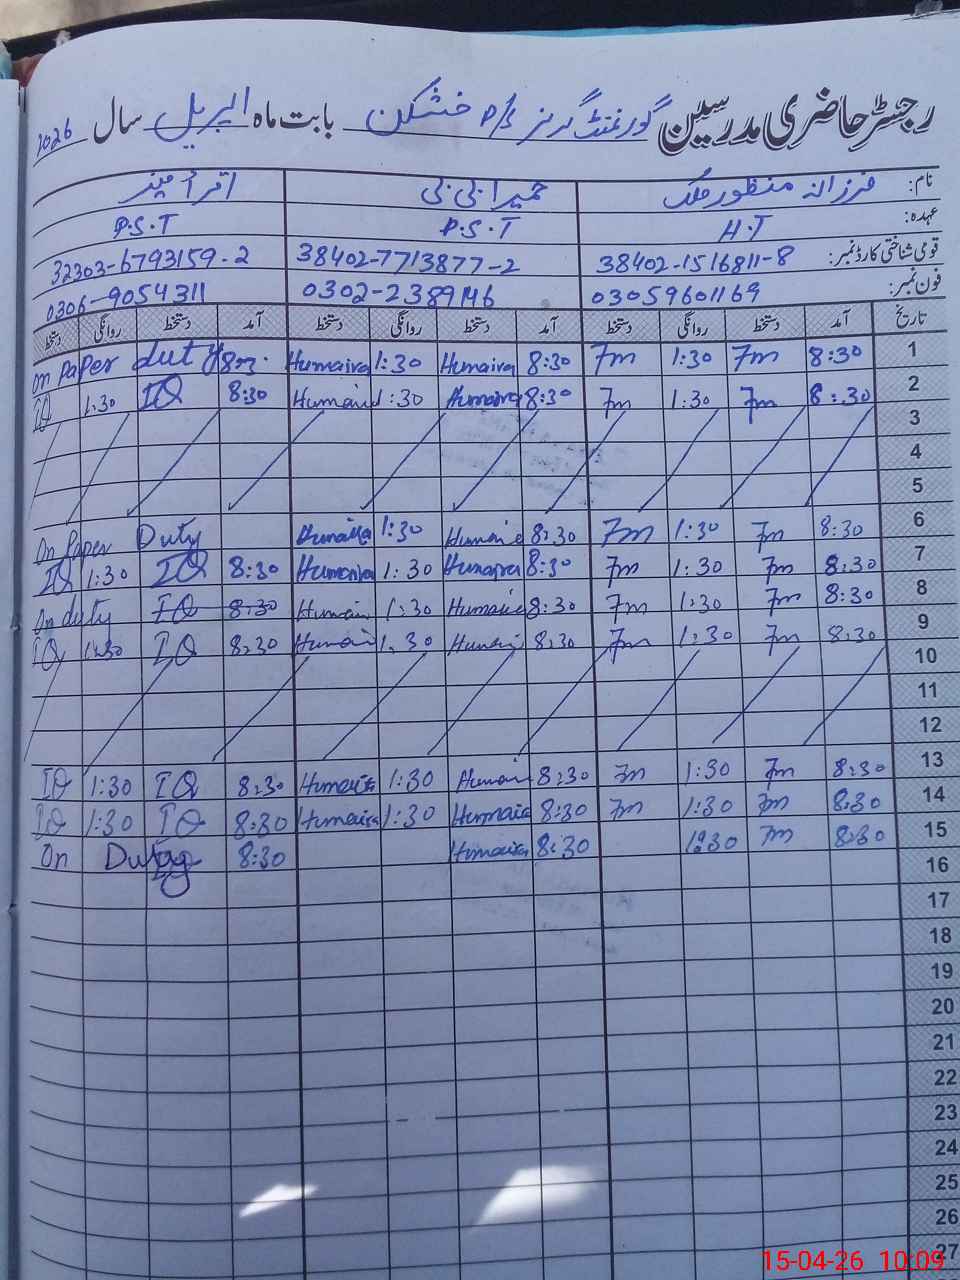 رجسٹر حاضری مدرسین گورنمنٹ گرلز P/S خشکن بابت ماہ اپریل سال 2026
نام: فرزانہ منظور ملک حمیرا بی بی اقرا
عہدہ: H.T P.S.T P.S.T
قومی شناختی کارڈ نمبر: 38402-1516811-8 38402-7713877-2 32303-6793159-2
فون نمبر: 03059601169 0302-2389146 0306-9054311
تاریخ آمد دستخط روانگی دستخط آمد دستخط روانگی دستخط آمد دستخط روانگی دستخط
1 8:30 7m 1:30 7m 8:30 Humaira 1:30 Humaira On Paper duty
2 8:30 7m 1:30 7m 8:30 Humaira 1:30 8:30 IQ 1:30 IQ
3
4
5
6 8:30 7m 1:30 7m 8:30 1:30 Humaira On Paper Duty
7 8:30 7m 1:30 7m 8:30 Humaira 1:30 Humaira 8:30 IQ 1:30 IQ
8 8:30 7m 1:30 7m 8:30 1:30 8:30 IQ On duty
9 8:30 7m 1:30 7m 8:30 1:30 8:30 IQ 1:30 IQ
10
11
12
13 8:30 7m 1:30 7m 8:30 1:30 Humaira 8:30 IQ 1:30 IQ
14 8:30 7m 1:30 7m 8:30 Humaira 1:30 Humaira 8:30 IQ 1:30 IQ
15 8:30 7m 8:30 Humaira 8:30 On Duty
16
17
18
19
20
21
22
23
24
25
26
27
15-04-26 10:09